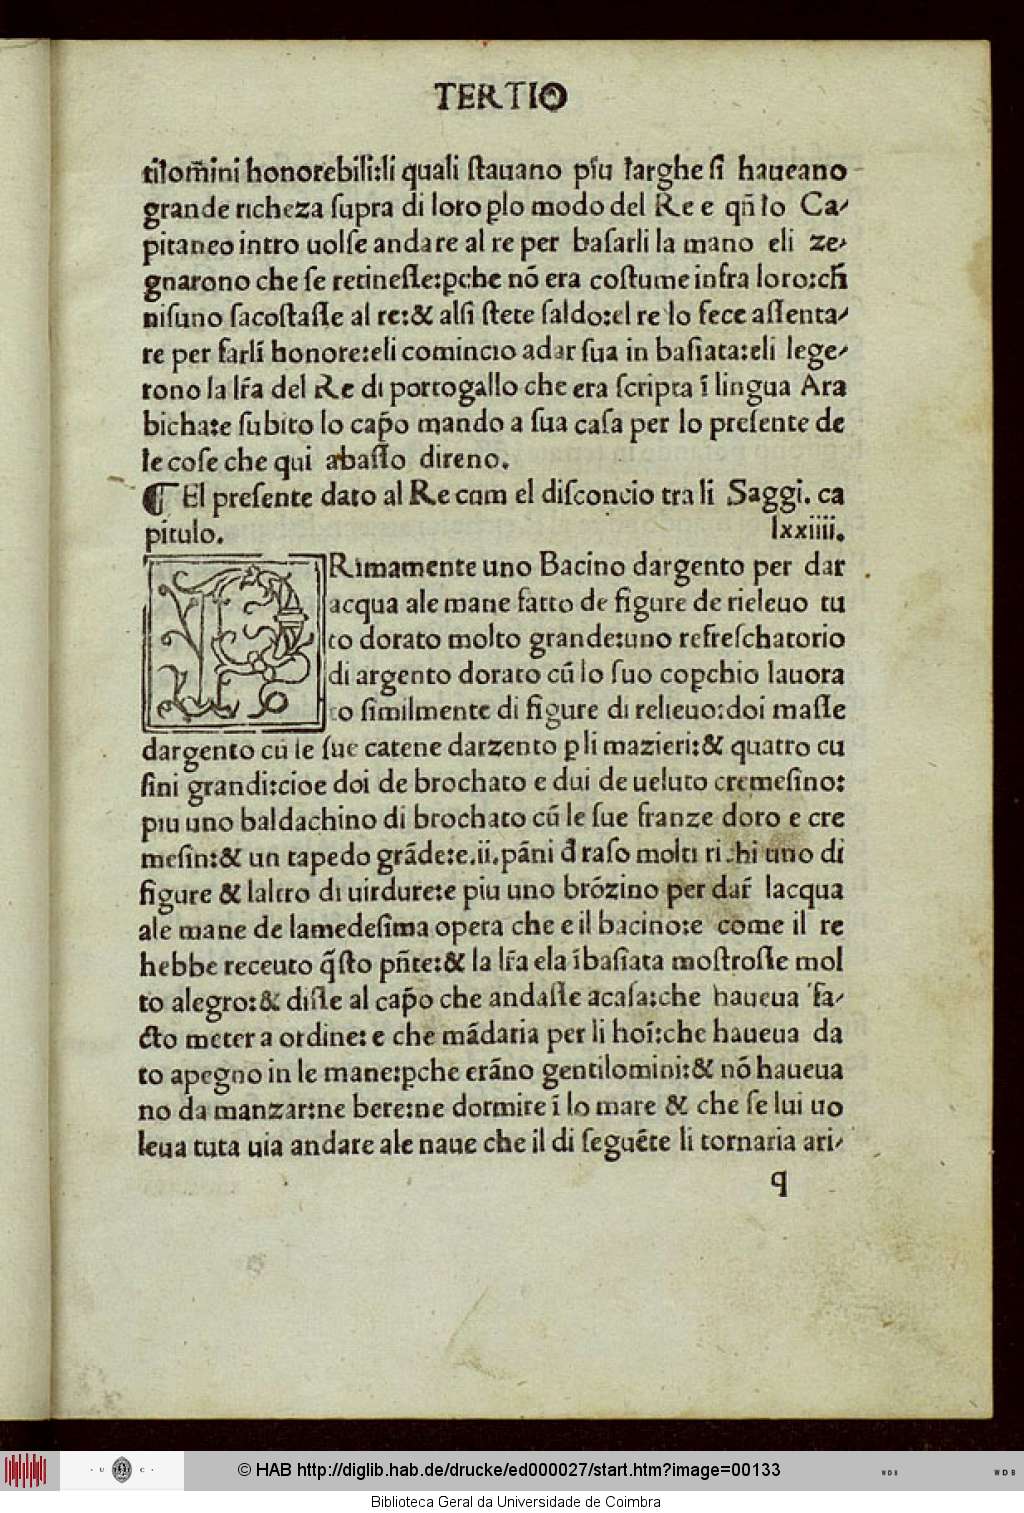 TERTIO
tilom̃ini honorebili:li quali ſtauano piu large ſi haueano
grande richeza ſupra di loro ꝑlo modo del Re e qñ lo Ca-
pitaneo intro uolſe andare al re per baſarli la mano eli ze-
gnarono che ſe retineſſe:ꝑche nõ era coſtume infra loro:ch̃
niſuno ſacoſtaſſe al re:& alſi ſtete ſaldo:el re lo fece aſſenta-
re per farli honore:eli comincio adar ſua in baſiata:eli lege-
rono la lr̃a del Re di portogallo che era ſcripta ĩ lingua Ara
bicha:e ſubito lo cap̃o mando a ſua caſa per lo preſente de
le coſe che qui abaſſo direno.
¶ El preſente dato al Re cum el diſconcio tra li Saggi. ca
pitulo. lxxiiii.
PRimamente uno Bacino dargento per dar
acqua ale mane fatto de figure de rieleuo tu
to dorato molto grande:uno refreſchatorio
di argento dorato cũ lo ſuo copchio lauora
to ſimilmente di figure di relieuo:doi maſſe
dargento cũ le ſue catene darzento ꝑ li mazieri:& quatro cu
ſini grandi:cioe doi de brochato e dui de ueluto cremeſino:
piu uno baldachino di brochato cũ le ſue franze doro e cre
meſin:& un tapedo grãde:e.ii.pãni d̃ raſo molti richi uno di
figure & laltro di uirdure:e piu uno brõzino per dar̃ lacqua
ale mane de lamedeſima opera che e il bacino:e come il re
hebbe receuto q̃ſto pñte:& la lr̃a ela ĩbaſiata moſtroſſe mol
to alegro:& diſſe al cap̃o che andaſſe acaſa:che haueua fa-
cto meter a ordine: e che mãdaria per li hoĩ:che haueua da
to apegno in le mane:ꝑche erãno gentilomini:& nõ haueua
no da manzar:ne bere:ne dormire ĩ lo mare & che ſe lui uo
leua tuta uia andare ale naue che il di ſeguẽte li tornaria ari-
q
© HAB http://diglib.hab.de/drucke/ed000027/start.htm?image=00133
· U C ·
WDB
WDB
Biblioteca Geral da Universidade de Coimbra